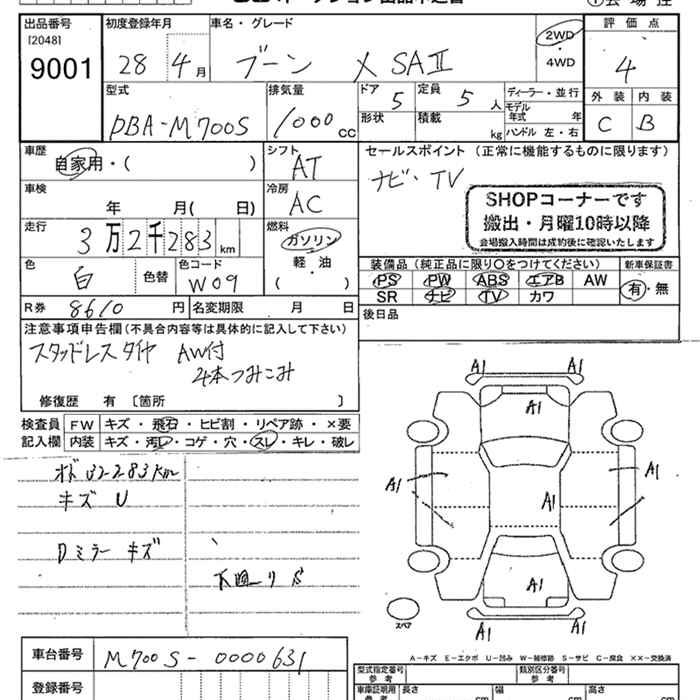 出品番号
[2048]
9001
初度登録年月
28 4月
車名・グレード
ブーン X SAⅡ
2WD
・
4WD
評価点
4
外装 内装
C B
型式
DBA-M700S
排気量
1000cc
ドア
5
定員
5人
形状
積載
kg
ディーラー・並行
モデル
年式 年
ハンドル 左・右
車歴
自家用・( )
シフト
AT
セールスポイント (正常に機能するものに限ります)
ナビ・TV
車検
年 月( 日)
冷房
AC
SHOPコーナーです
搬出・月曜10時以降
会場搬入時間は成約後に確認いたします
走行
3万2千283km
燃料
ガソリン
軽・油
( )
色
白
色替
色コード
W09
装備品 (純正品に限り○をつけてください)
新車保証書
PS PW ABS エアB AW
SR ナビ TV カワ
有・無
R券 8610円
名変期限 月 日
後日品
注意事項申告欄(不具合内容等は具体的に記入して下さい)
スタッドレスタイヤ AW付
4本つみこみ
修復歴 有〔箇所 〕
検査員
記入欄
FW キズ・飛石・ヒビ割・リペア跡・×要
内装 キズ・汚レ・コゲ・穴・スレ・キレ・破レ
キズ U
Dミラー キズ
下廻りS
A1 A1
A1
A1 A1
A1
A1
A1 A1
スペア
A-キズ E-エクボ U-凹み W-補修跡 S-サビ C-腐食 XX-交換済
車台番号
M700S-0000631
登録番号
型式指定番号
参考
類別区分番号
参考
車庫証明用
参考
長さ 幅 高さ
cm cm cm